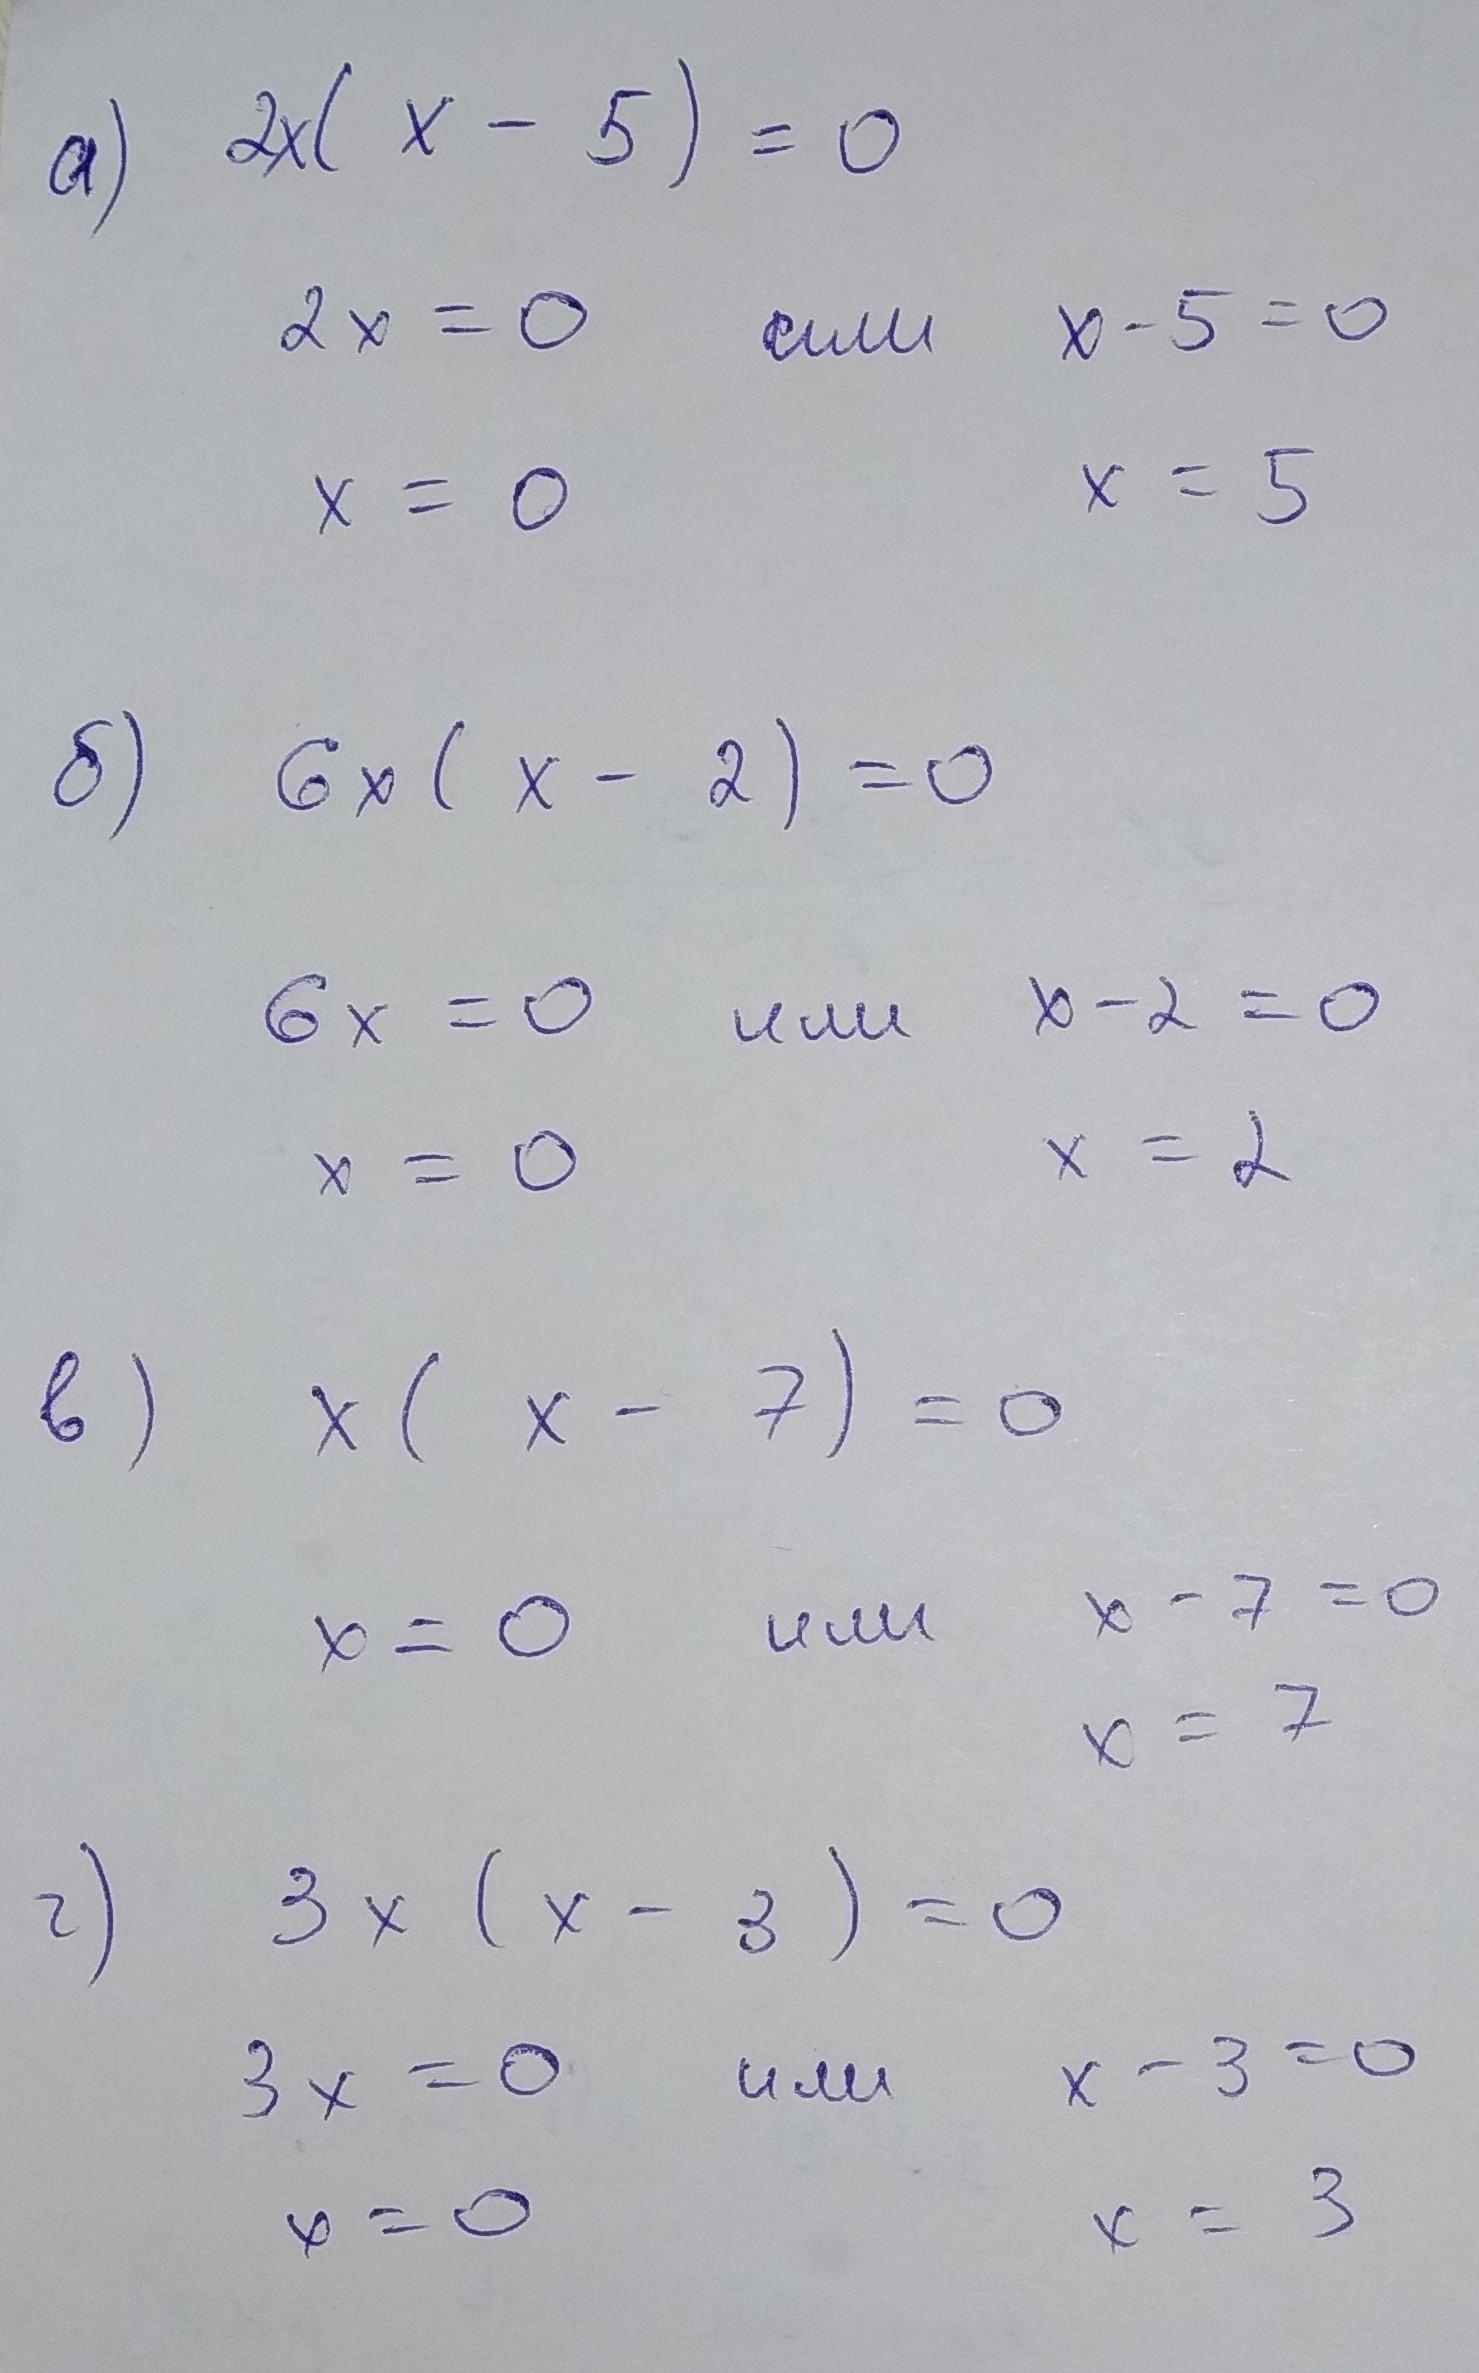 а) 2x( x - 5) = 0
2x = 0 или x - 5 = 0
x = 0 x = 5
б) 6x( x - 2) = 0
6x = 0 или x - 2 = 0
x = 0 x = 2
в) x( x - 7) = 0
x = 0 или x - 7 = 0
x = 7
г) 3x (x - 3) = 0
3x = 0 или x - 3 = 0
x = 0 x = 3